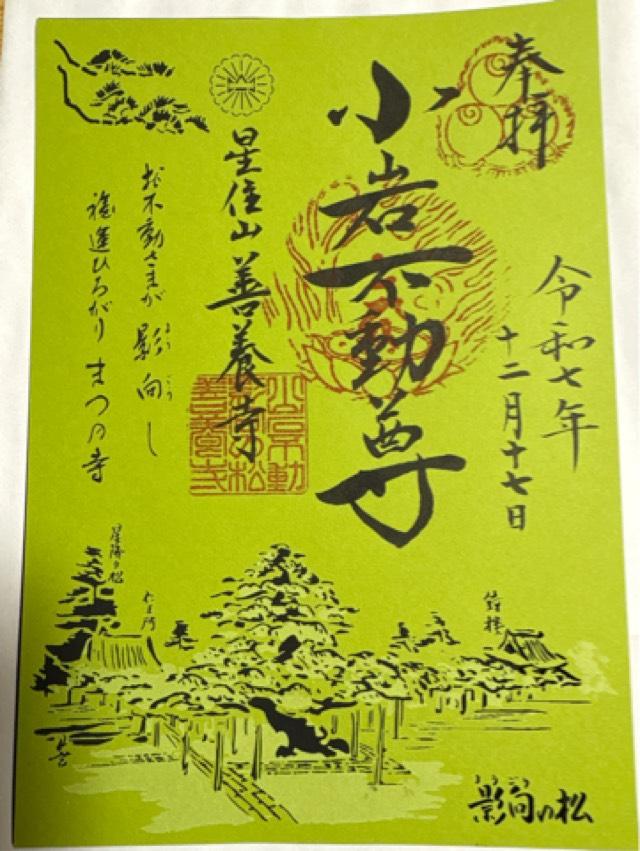 奉拝
令和七年
十二月十七日
小岩不動尊
星住山善養寺
お不動さまが影向し
ようごう
福運ひろがりまつの寺
星降り松
仁王門
鐘楼
ようごう
影向の松